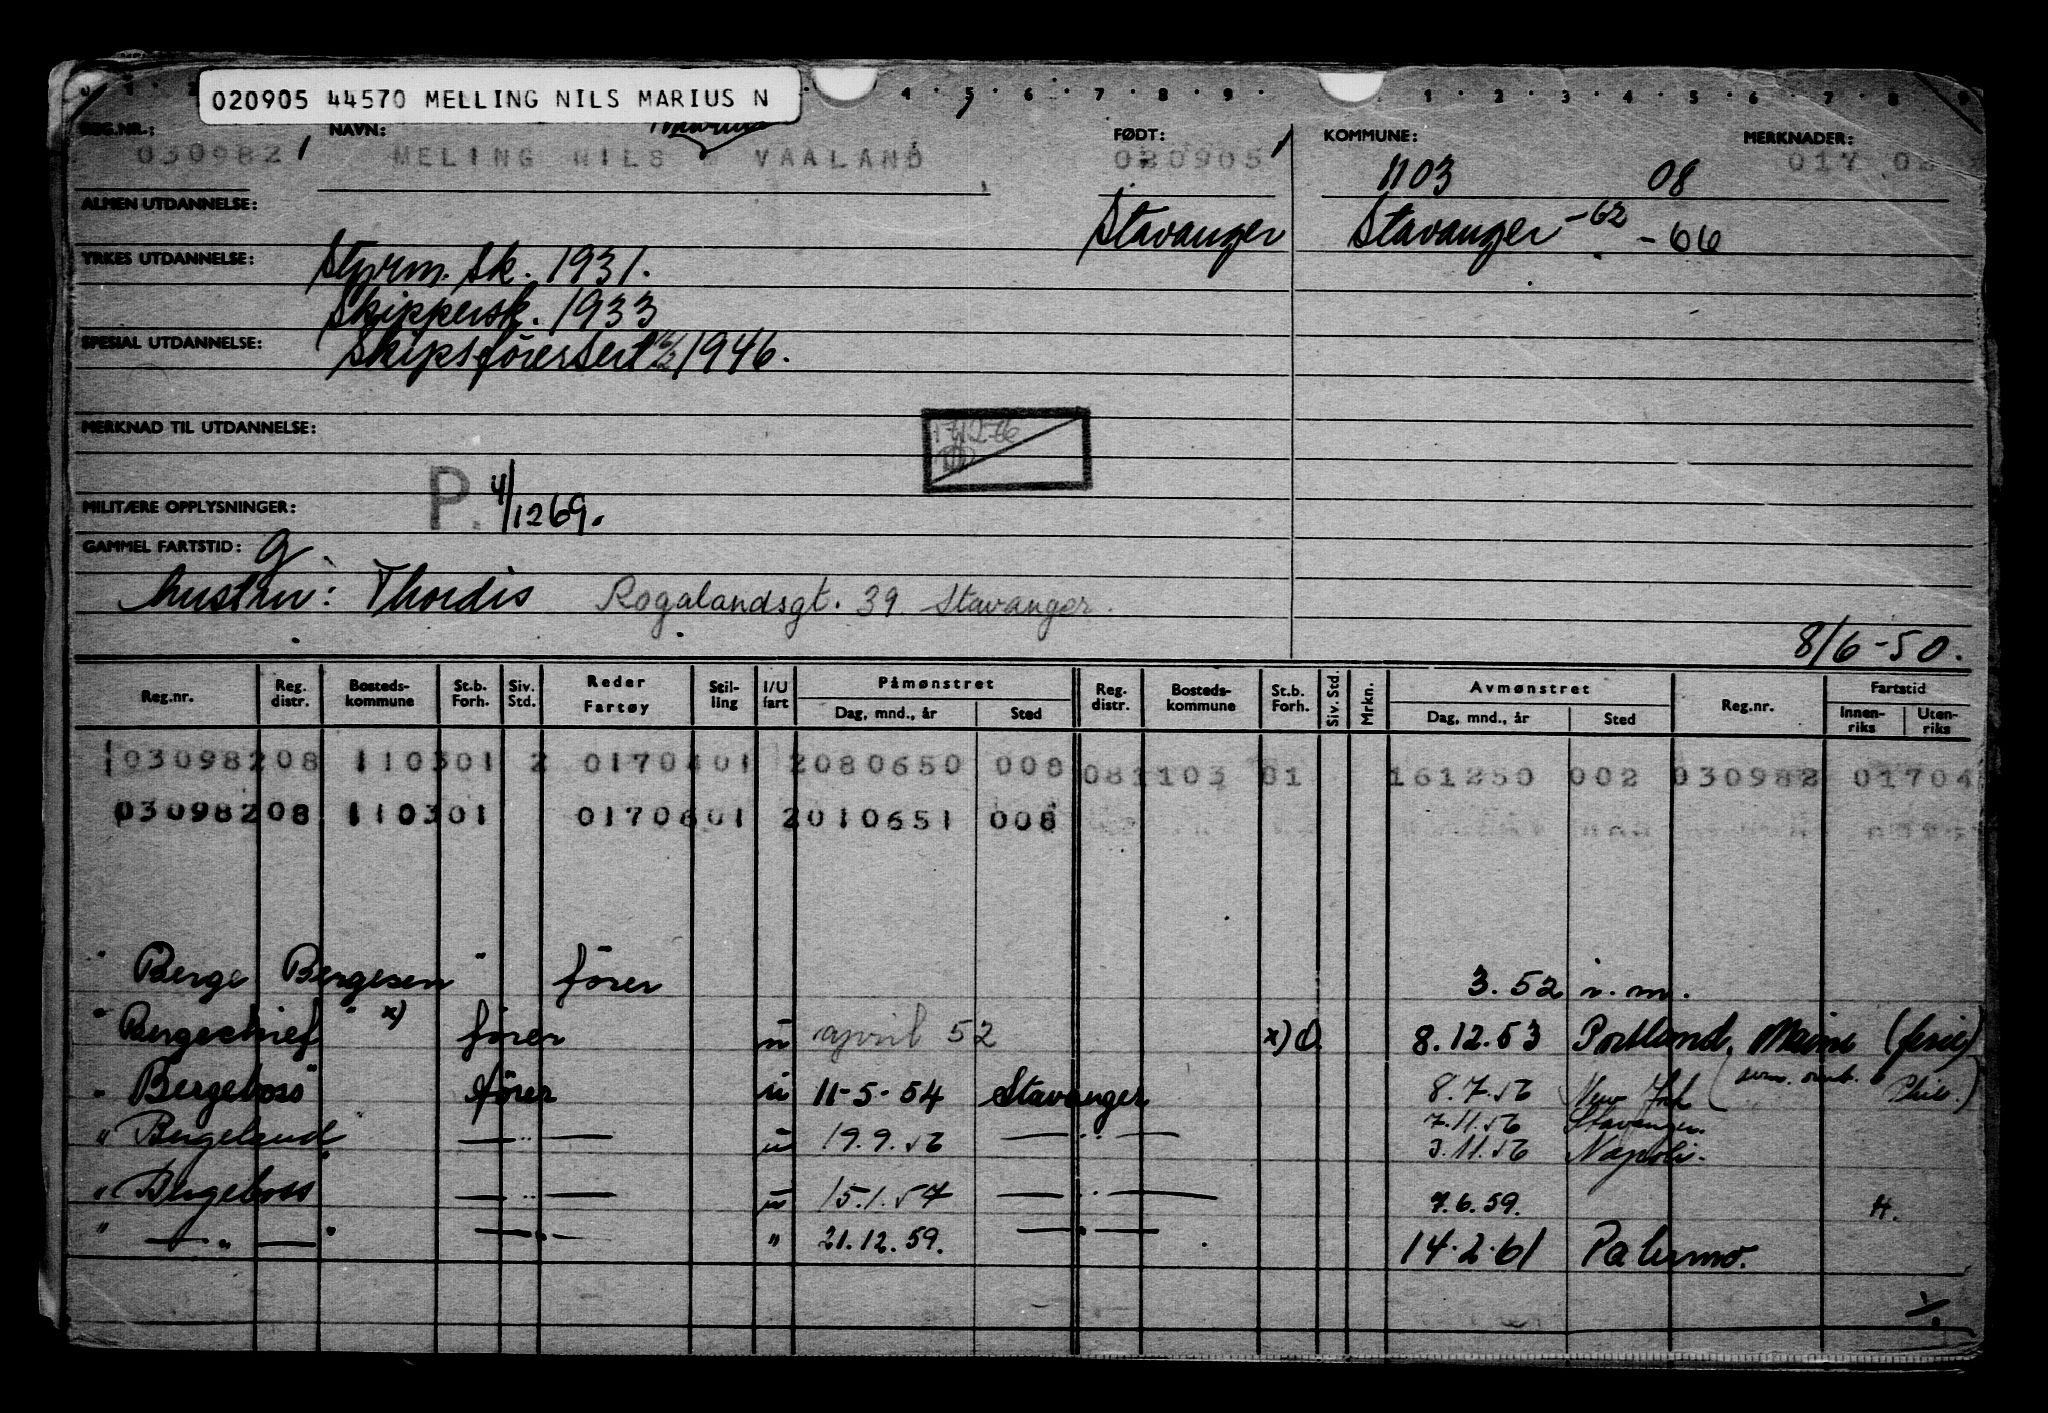 020905 44570 MELLING NILS MARIUS N
4 5 6 7 8 9 1 2 3 4 5 6 7 8 9
REG.NR.: NAVN: Marius FØDT: KOMMUNE: MERKNADER:
030982 MELING NILS VAALAND 020905 1103 08 017 02
ALMEN UTDANNELSE:
Stavanger Stavanger -62 -66
YRKES UTDANNELSE: Styrm. sk. 1931.
Skippersk. 1933
SPESIAL UTDANNELSE: Skipsförersert 16/2 1946.
MERKNAD TIL UTDANNELSE: 171276
MILITÆRE OPPLYSNINGER: P. 4/1269.
GAMMEL FARTSTID: g.
hustru: Thordis Rogalandsgt. 39 Stavanger.
8/6-50.
Reg.nr. Reg. distr. Bosteds-kommune St.b. Forh. Siv. Std. Reder Fartøy Stil-ling I/U fart Påmønstret Dag, mnd., år Sted Reg. distr. Bosteds-kommune St.b. Forh. Siv. Std. Mrkn. Avmønstret Dag, mnd., år Sted Reg.nr. Fartstid Innen-riks Uten-riks
030982 08 1103 01 2 0170401 2 080650 008 08 1103 01 161250 002 030982 01704
030982 08 1103 01 0170601 2 010651 008
" Berge Bergesen " förer 3.52 i.m.
" Bergechief " x) förer u april 52 x) 8.12.53 Portland, Maine (ferie)
" Bergeboss" förer u 11-5-54 Stavanger 8.7.56 New York
7.11.56 Stavanger.
" Bergeland " — " — u 19.9.56 — " — 3.11.56 Napoli.
" Bergeboss " — " — u 15.1.57 — " — 7.6.59. H.
" — " — " — " — " 21.12.59. — " — 14.2.61 Palermo.